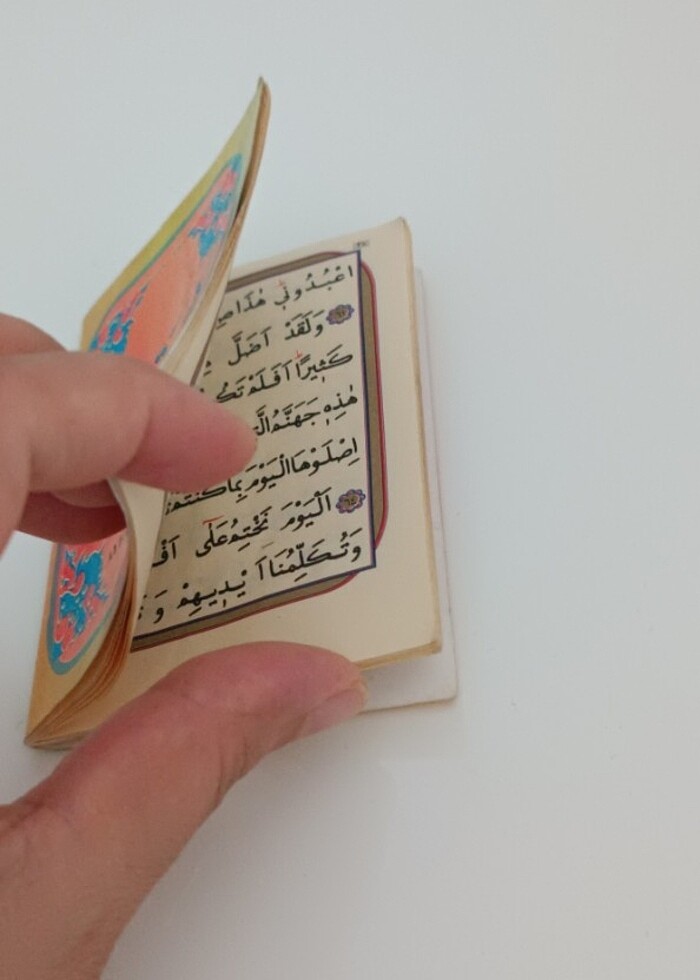 اعْبُدُونِي هٰذَا
وَلَقَدْ اَضَلَّ
كَثِيرًا اَفَلَمْ
هٰذِهِ جَهَنَّمُ
اِصْلَوْهَا الْيَوْمَ بِمَا كُنْتُمْ
اَلْيَوْمَ نَخْتِمُ عَلٰٓى
وَتُكَلِّمُنَا اَيْدِيهِمْ وَ